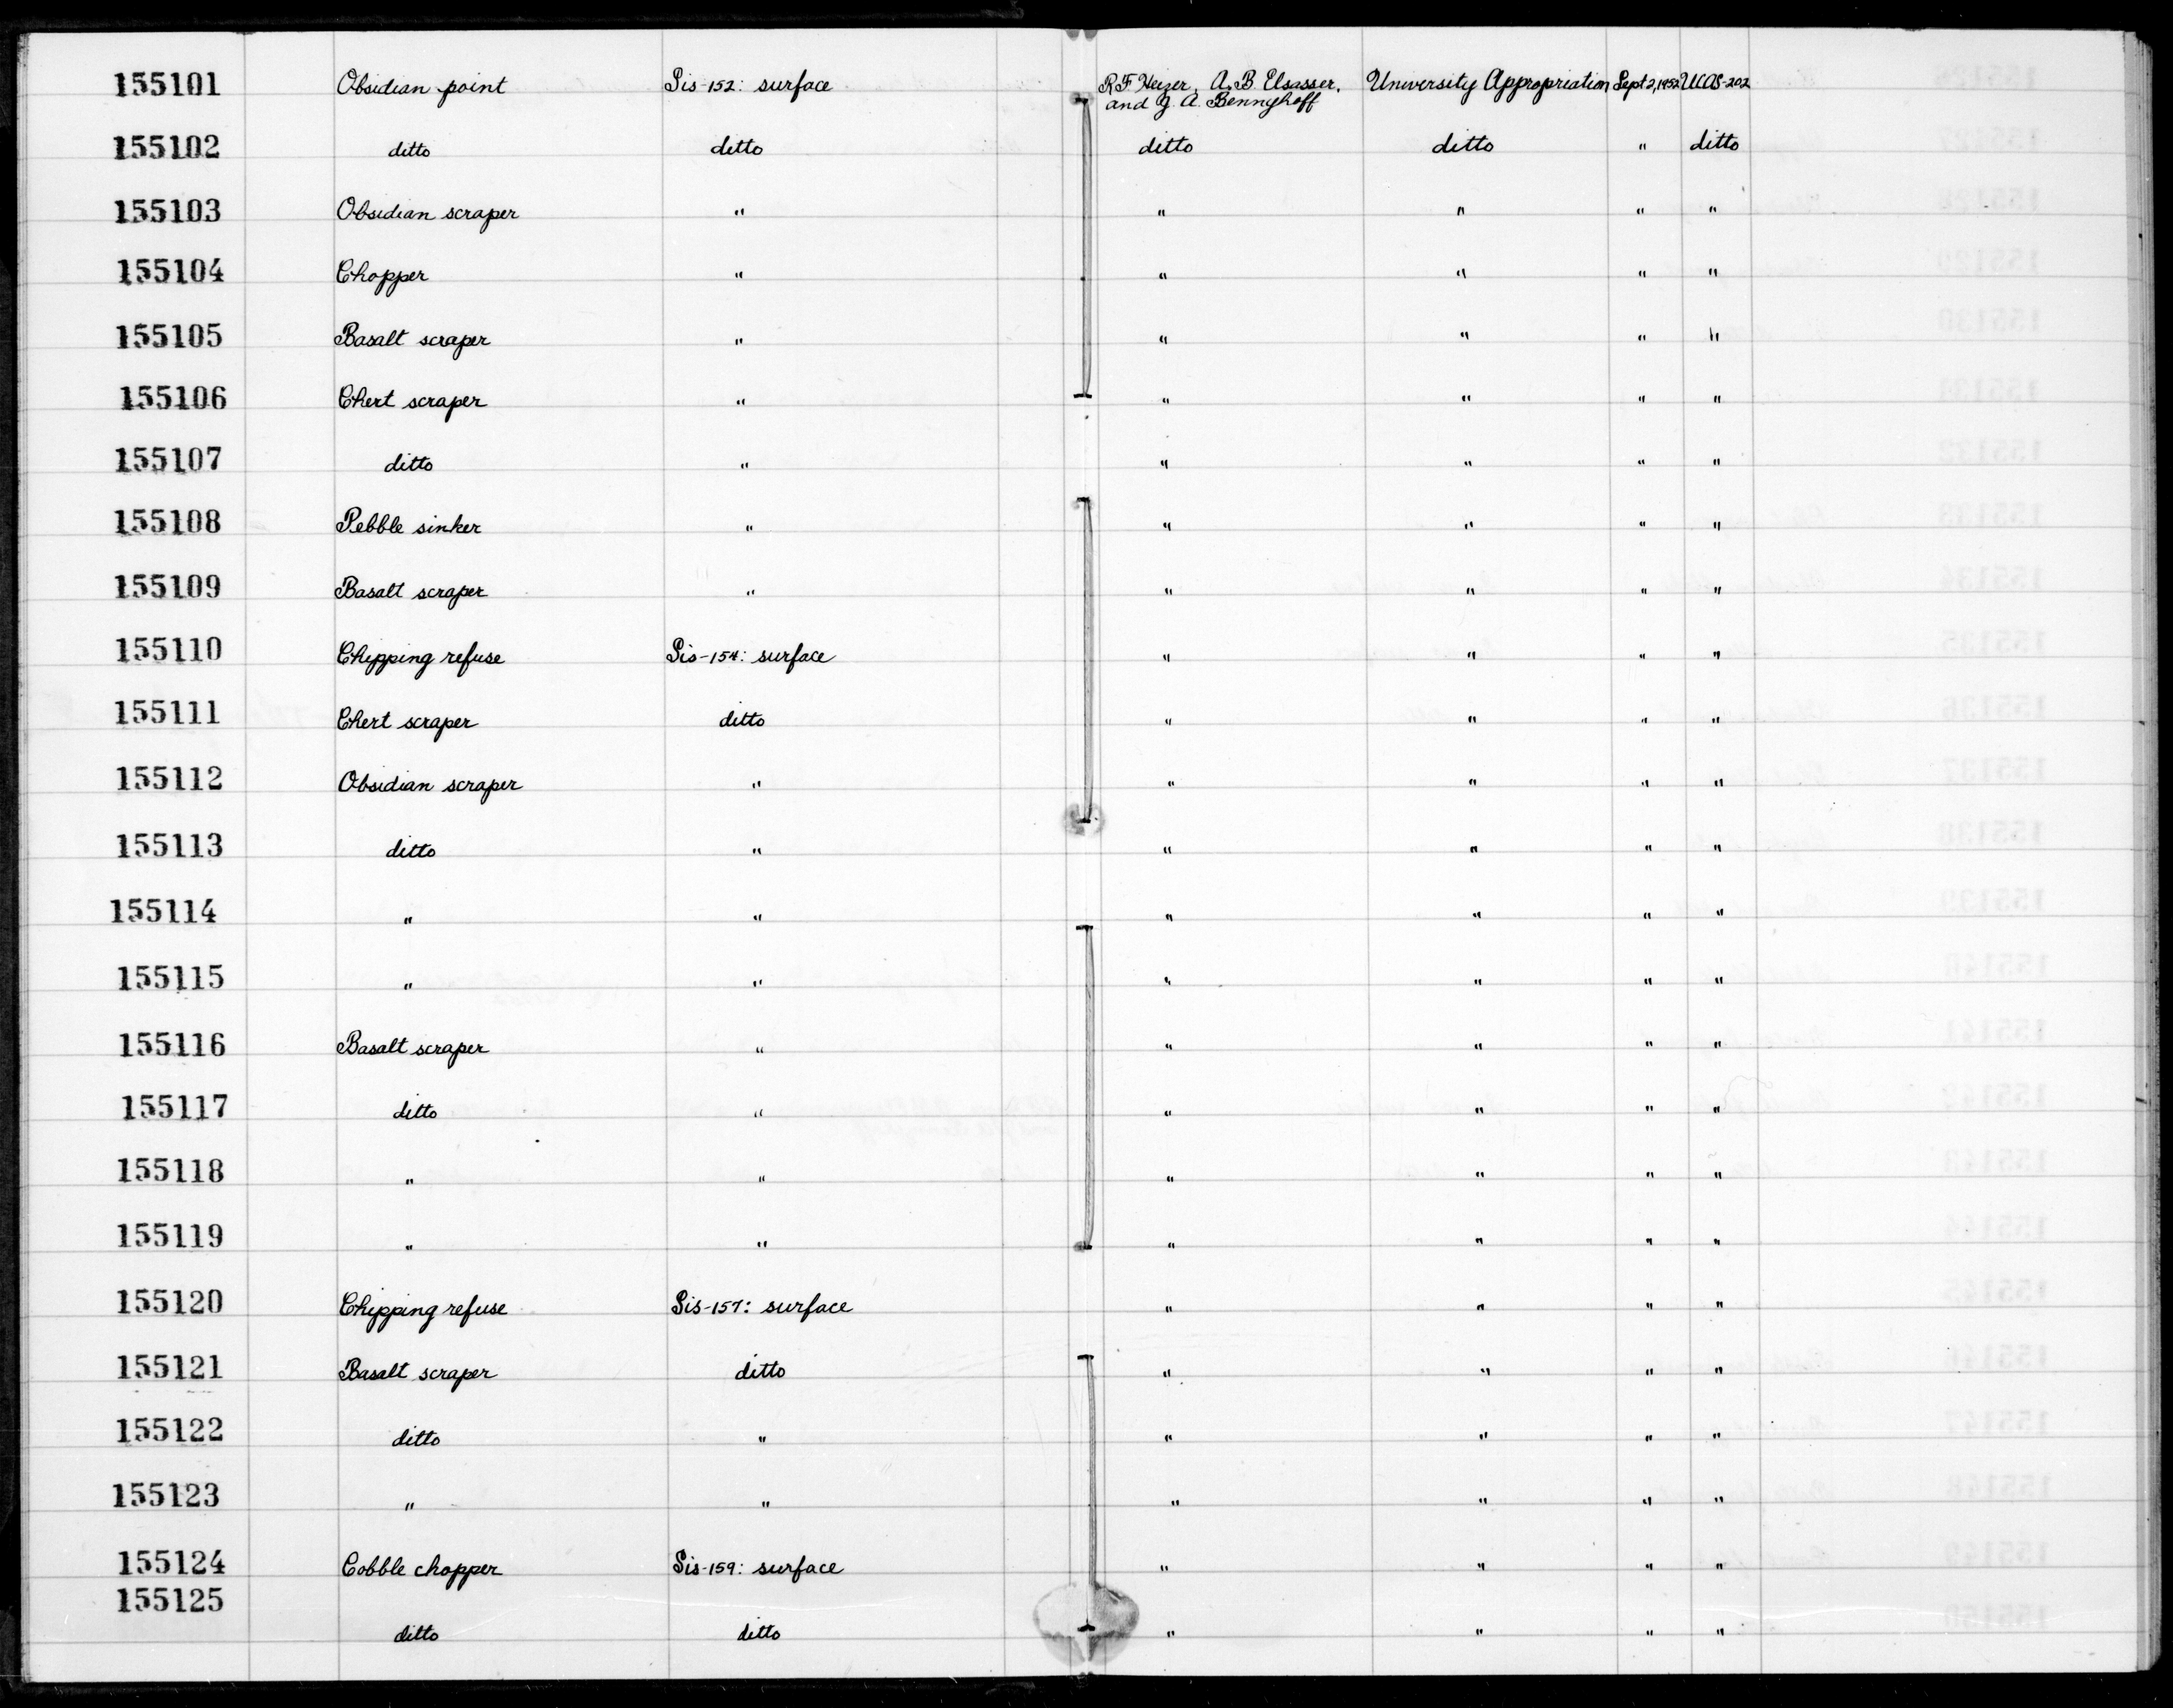 155101 Obsidian point Sis-152: surface R.F. Heizer, A.B. Elsasser, University Appropriation Sept 2, 1952 UCAS-202
and J. A. Bennyhoff
155102 ditto ditto ditto ditto " ditto
155103 Obsidian scraper " " " " "
155104 Chopper " " " " "
155105 Basalt scraper " " " " "
155106 Chert scraper " " " " "
155107 ditto " " " " "
155108 Pebble sinker " " " " "
155109 Basalt scraper " " " " "
155110 Chipping refuse Sis-154: surface " " " "
155111 Chert scraper ditto " " " "
155112 Obsidian scraper " " " " "
155113 ditto " " " " "
155114 " " " " " "
155115 " " " " " "
155116 Basalt scraper " " " " "
155117 ditto " " " " "
155118 " " " " " "
155119 " " " " " "
155120 Chipping refuse Sis-157: surface " " " "
155121 Basalt scraper ditto " " " "
155122 ditto " " " " "
155123 " " " " " "
155124 Cobble chopper Sis-159: surface " " " "
155125 ditto ditto " " " "